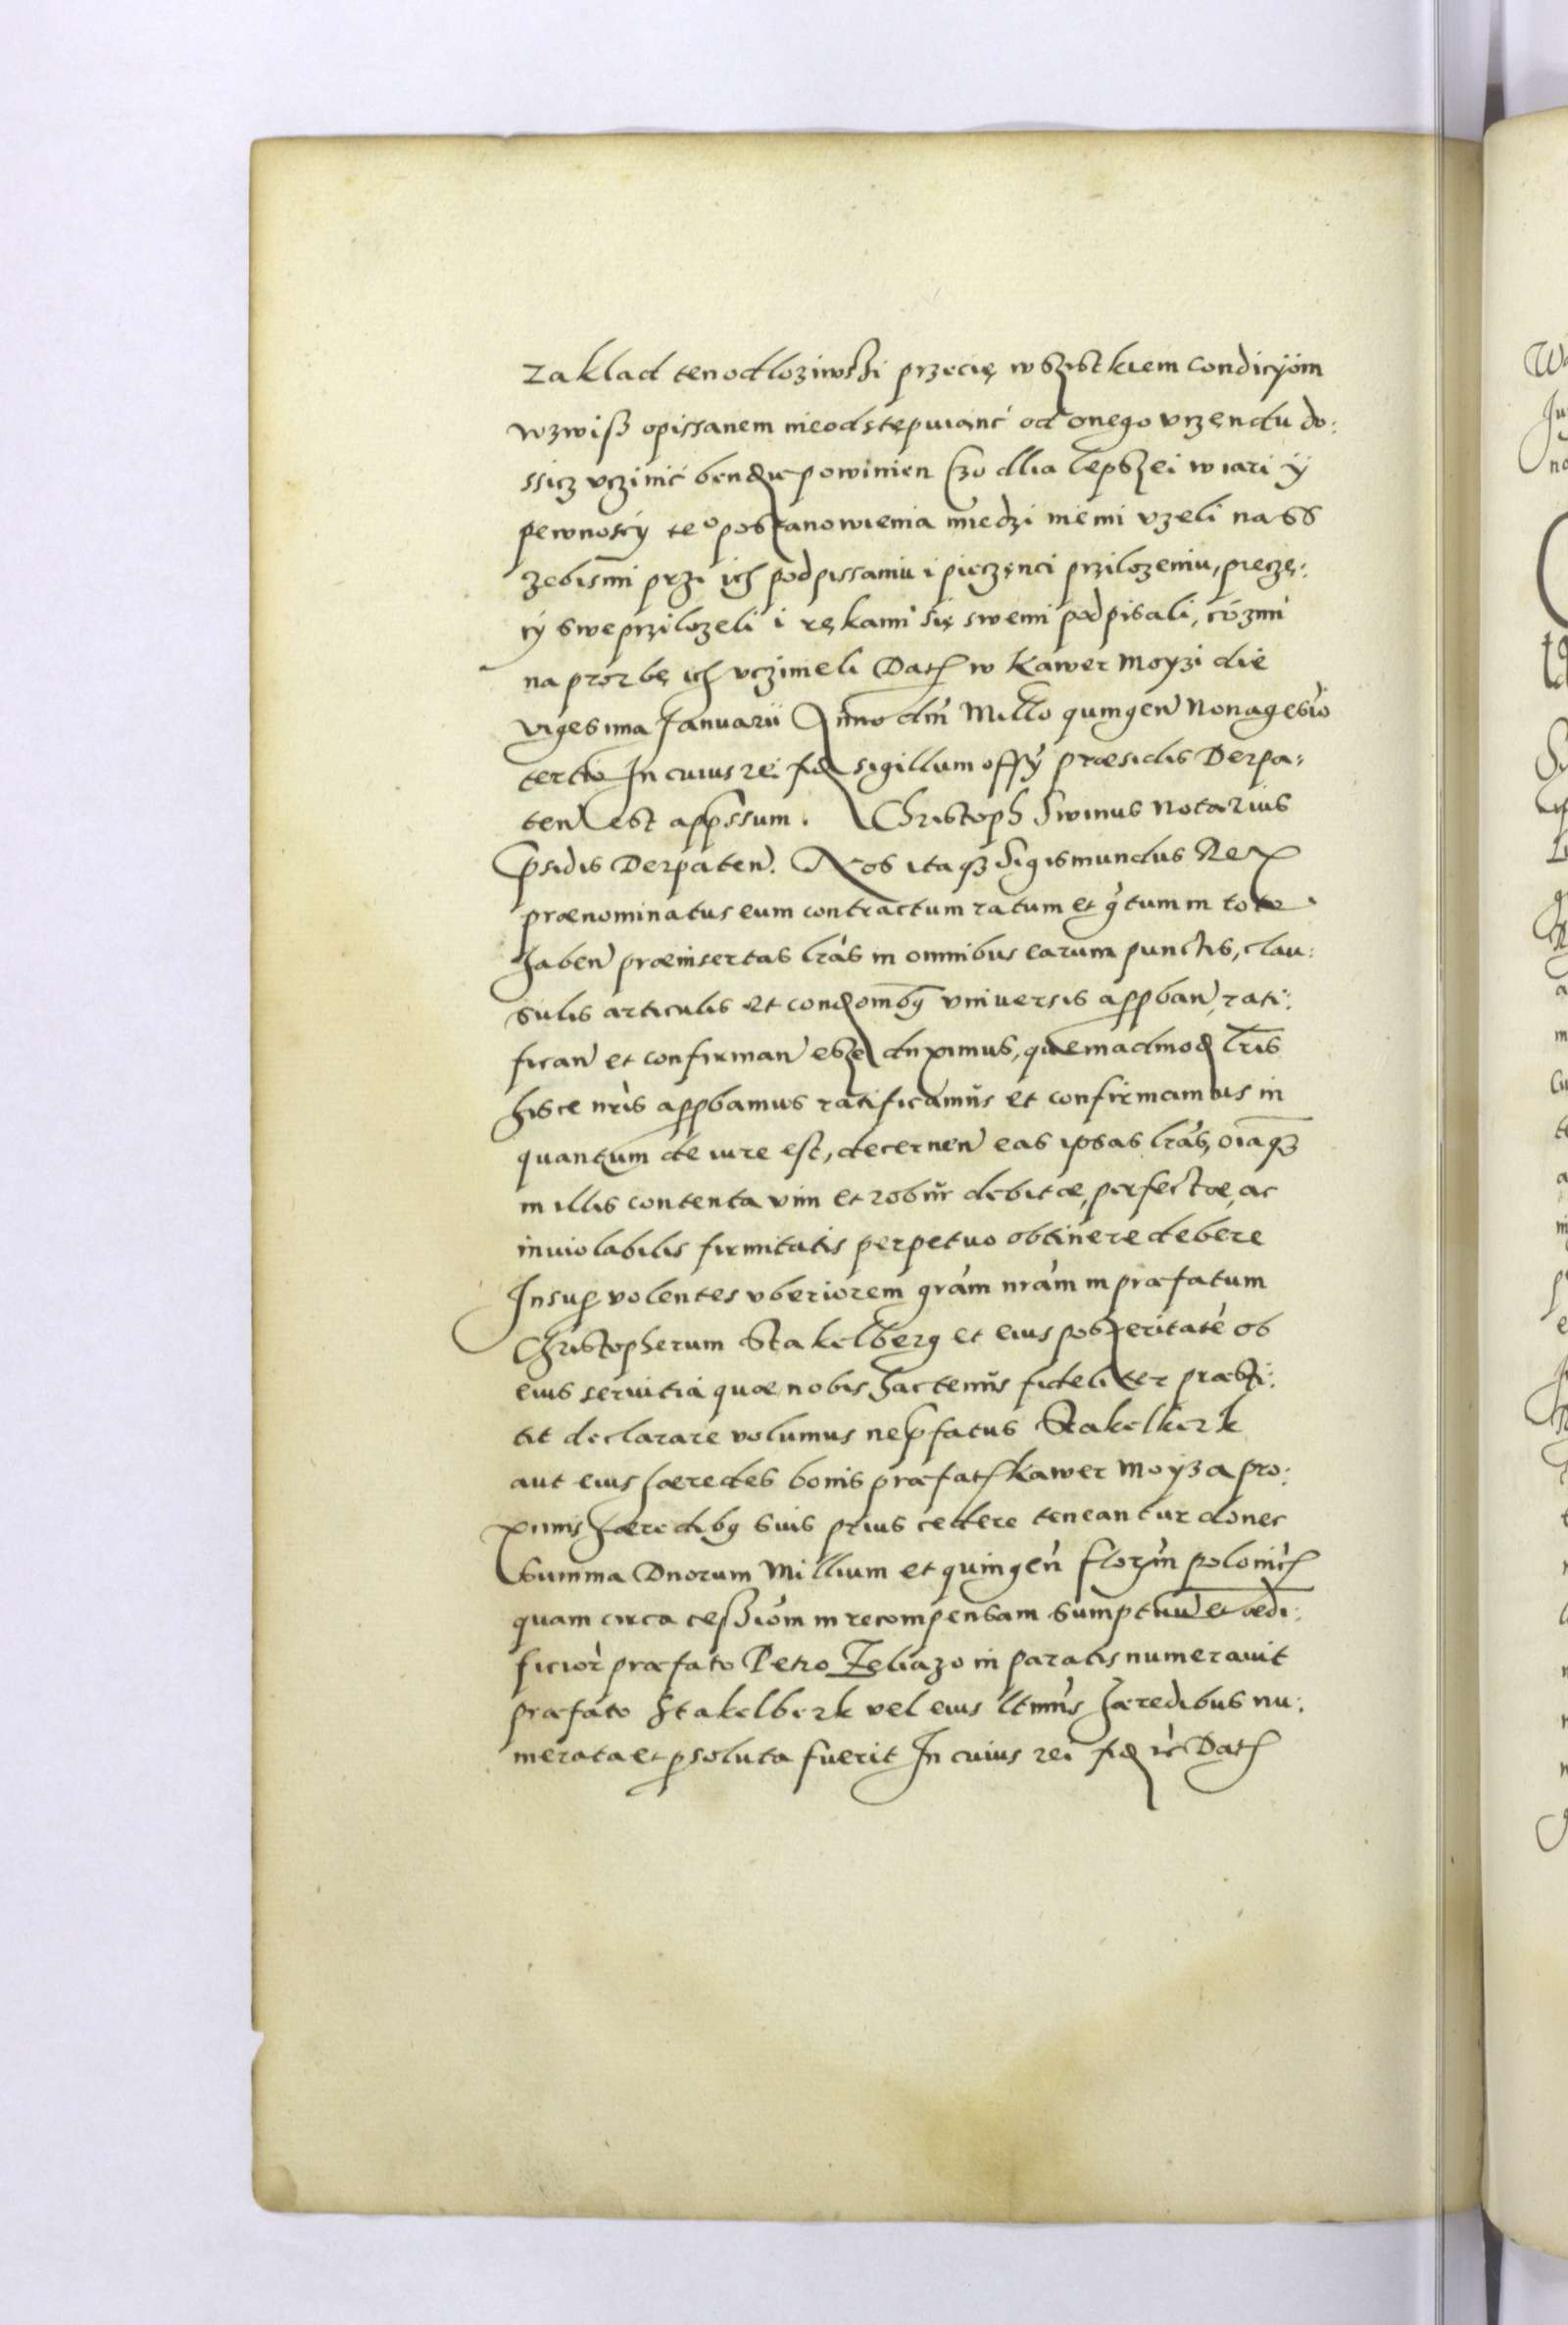 zaklad ten odloziwssi przecię wszistkiem condicyiom
wzwiss opissanem nieodstępuianc od onego vrzendu do:
ssicz vczinić bendzie powinien Czo dlia lepszei wiari ÿ
pewnoscÿ te° postanowienia miedzi niemi vzeli nass
zebismi przi ich podpissaniu i pieczęnci prziłozeniu, pieczę:
cÿ swe przilozeli i rękami się swemi podpisali, cózmi
na prozbę ich vczinieli Dat w Kawer moyzi die
vigesima Januarii Anno dni Millo quingen Nonagesio
tertio In cuius rei fid sigillum offÿ præsidis Derpa:
ten est appssum. Christoph Swinus Notarius
Psidis Derpaten. Nos itaq3 Sigismundus Rex
prænominatus eum contractum ratum et gtum in toto
haben præinsertas lras in omnibus earum punctis, clau:
sulis articulis et condomb9 vniversis appban, rati:
fican et confirman esse duximus, quemadmod lris
hisce nris appbamus ratificamus et confirmamus in
quantum de iure est, decernen eas ipsas lras, oiaq3
in illis contenta vim et robur debitæ, perfectæ, ac
inuiolabilis firmitatis perpetuo obtinere debere
Insup volentes vberiorem gram nram in præfatum
Christopherum Stakelberg et eius posteritate ob
eius servitia quæ nobis hactenus fideliter præsti:
tit declarare volumus ne pfatus Stakelkerk
aut eius hæredes bonis præfat Kawer Moÿza pro:
ximis hæredib9 suis prius cedere teneantur donec
summa Duorum Millium et quingen florin polonic
quam circa cessiom in recompensam sumptuu et ædi:
ficior præfato Petro Zeliazo in paratis numeravit
præfato Stakelberk vel eius ltmis hæredibus nu:
merata et psoluta fuerit In cuius rei fid ic Dat